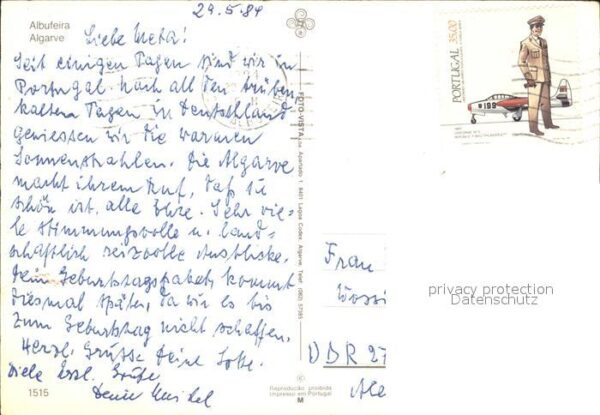 29.5.84
Albufeira
Algarve
Liebe Meta!
Seit einigen Tagen sind wir in
Portugal. Nach all den trüben,
kalten Tagen in Deutschland
geniessen wir die warmen
Sonnenstrahlen. Die Algarve
macht ihrem Ruf, daß sie
schön ist, alle Ehre. Sehr vie-
le stimmungsvolle u. land-
schaftlich reizvolle Ausblicke.
Dein Geburtstagspaket kommt
diesmal später, da wir es bis
zum Geburtstag nicht schaffen.
Herzl. Grüsse Deine Lotte.
Viele herzl. Grüße
1515
FOTO-VISTA, Apartado 1 8401 Lagoa Codex Algarve Telef. (082) 57385
Reprodução proibida
Impresso em Portugal
M
PORTUGAL 35,00
189
Frau
DDR 27
privacy protection
Datenschutz